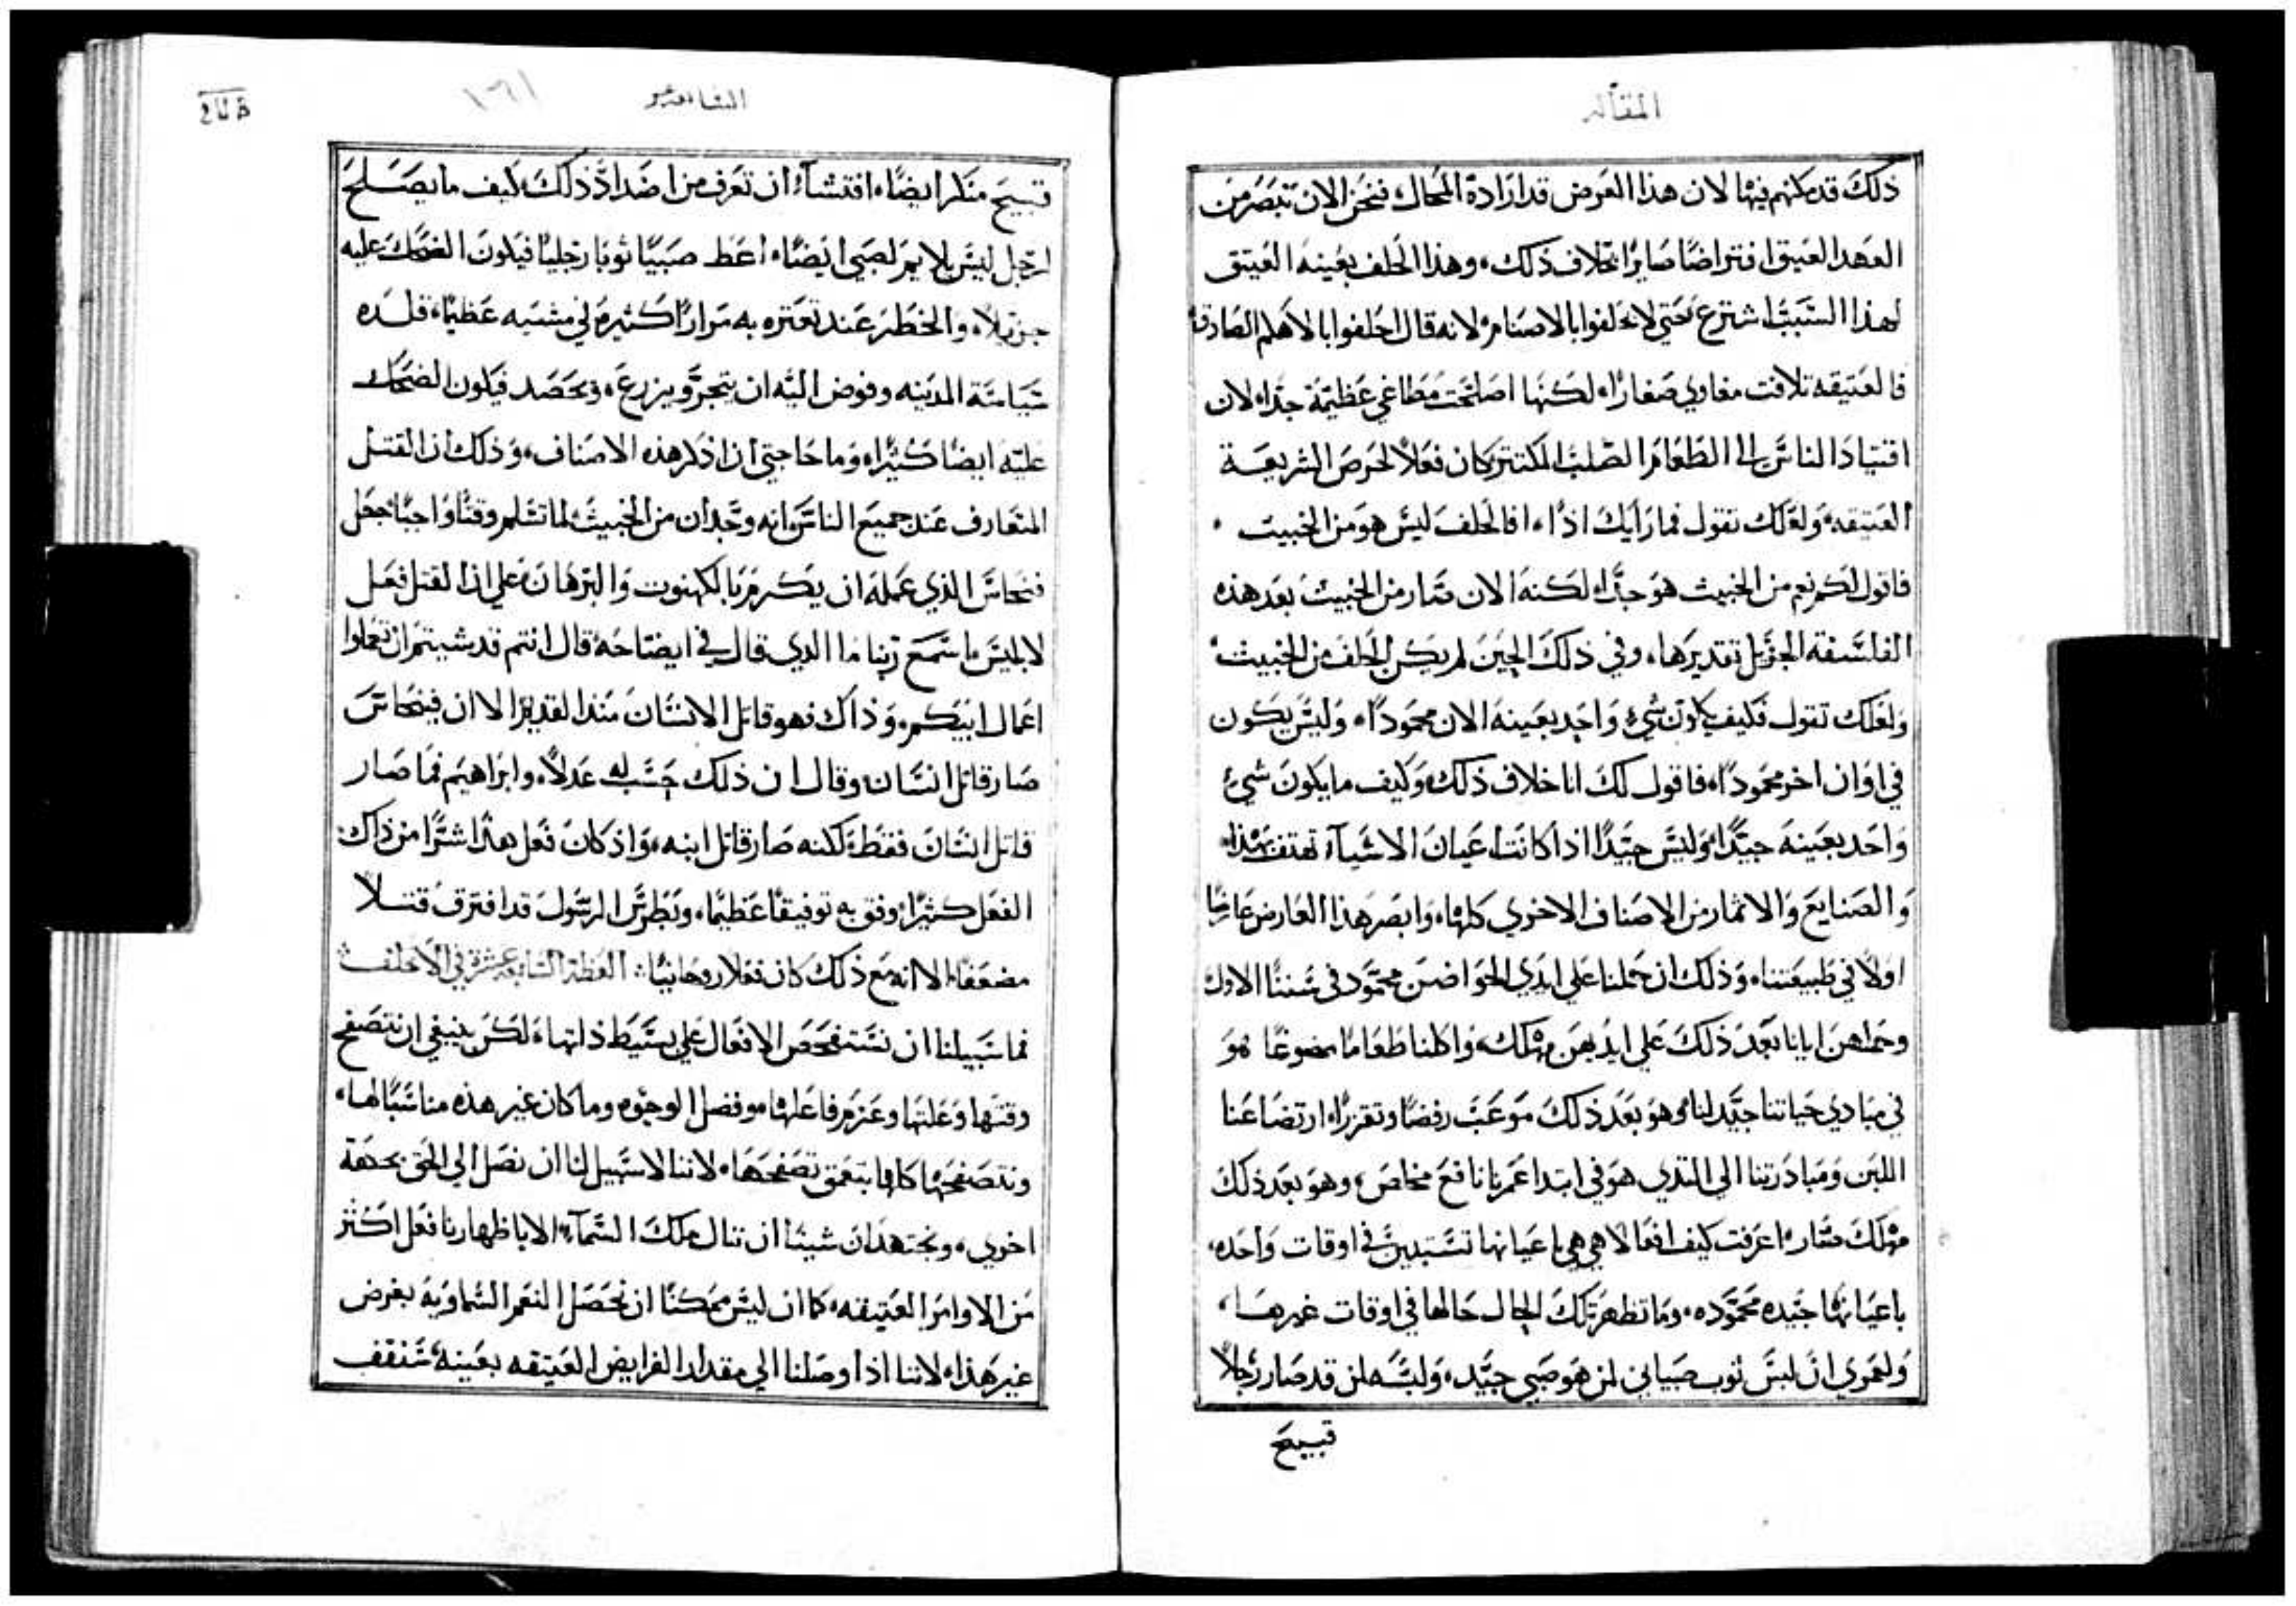 المقاله
ذلك قد مكنهم فيها لان هذا العوض قد اراده المحال، فنحن الان نبصر من
العهد العتيق افتراضًا صايرًا بخلاف ذلك، وهذا الحلف بعينه العتيق
لهذا السبب اشترع حتى لا يحلفوا بالاصنام لانه قال احلفوا بالاهلم الصادق
فالعتيقه تلافت مغاوي صغارًا، لكنها اصلحت مطاغي عظيمة جدًا، لان
اقتياد الناس الى الطعام الصلب المكتنز كان فعلاً لحرص الشريعة
العتيقه، ولعلك تقول فما رايك اذًا، افالحلف ليس هو من الخبيث،
فاقول لكم نعم من الخبيث هو جدًا، لكنه الان صار من الخبيث بعد هذه
الفلسفة الجزيل تقديرها، وفي ذلك الحين لم يكن الحلف من الخبيث،
ولعلك تقول فكيف يكون شيء واحد بعينه الان محمودًا، وليس يكون
في اوان اخر محمودًا، فاقول لك انا خلاف ذلك، وكيف ما يكون شيء
واحد بعينه جيدًا، وليس جيدًا اذا كانت اعيان الاشياء تهتف بهذا،
والصنايع والاثمار من الاصناف الاخرى كلها، وابصر هذا العارض عارضًا
اولاً في طبيعتنا، وذلك ان حملنا على ايدي الحواضن محمود في سننا الاول
وحملهن ايانا بعد ذلك على ايديهن مهلك، واكلنا طعامًا ممضوغًا هو
في مبادي حياتنا جيد لنا، وهو بعد ذلك موعب رفضًا وتقززًا، ارتضاعنا
اللبن ومبادرتنا الى الثدي هو في ابتدا عمرنا نافع مخلص، وهو بعد ذلك
مهلك ضار، اعرفت كيف افعالا هي هي باعيانها تستبين في اوقات واحده،
باعيانها جيده محموده، وما تظهر تلك الحال حالها في اوقات غيرها،
ولعمري ان لبس ثوب صبياني لمن هو صبي جيد، ولبسه لمن قد صار رجلاً
قبيح
السابعه عشر
١٦١
قبيح منكر ايضًا، افتشاء ان تعرف من اضداد ذلك كيف ما يصلح
لرجل ليس يلايم لصبي ايضًا، اعط صبيًا ثوبًا رجليًا فيكون الضحك عليه
جزيلاً، والخطر عند تعثره به مرارًا كثيره في مشيه عظيمًا، قلده
سياسة المدينه وفوض اليه ان يتجر ويزرع، ويحصد فيكون الضحك
عليه ايضًا كثيرًا، وما حاجتي ان اذكر هذه الاصناف، وذلك ان القتل
المتعارف عند جميع الناس انه وجدان من الخبيث، لما تسلم وقتًا واجبًا جعل
فنحاس الذي عمله ان يكرم بالكهنوت والبرهان على ان القتل فعل
لابليس، اسمع ربنا ما الذي قال في ايضاحه قال انتم قد شيتم ان تعملوا
اعمال ابيكم، وذاك فهو قاتل الانسان منذ القديم، الا ان فينحاس
صار قاتل انسان، وقال ان ذلك حسب له عدلاً، وابراهيم فما صار
قاتل انسان فقط، لكنه صار قاتل ابنه، واذ كان فعل هذا اشرًا من ذاك
الفعل كثيرًا، وفق به توفيقًا عظيمًا، وبطرس الرسول قد افترق قتلاً
مضعفًا، الا انه مع ذلك كان فعلا روحانيًا: العظة السابعه عشرة في الا نحلف
فما سبيلنا ان نستفحص الافعال على بسيط ذاتها، لكن ينبغي ان نتصفح
وقتها وعلتها وعزم فاعلها وفصل الوجوه وما كان غير هذه مناسبًا لها،
ونتصفحها كافها بتعمق تصفحها، لاننا لا سبيل لنا ان نصل الى الحق بجهة
اخرى، ونجتهد ان شينا ان تنال ملك السماء، الا باظهارنا فعل اكثر
من الاوامر العتيقه، كما ان ليس ممكنًا ان نحصل النعم السماوية بغرض
غير هذا، لاننا اذا وصلنا الى مقدار الفرايض العتيقه بعينه، سنقف